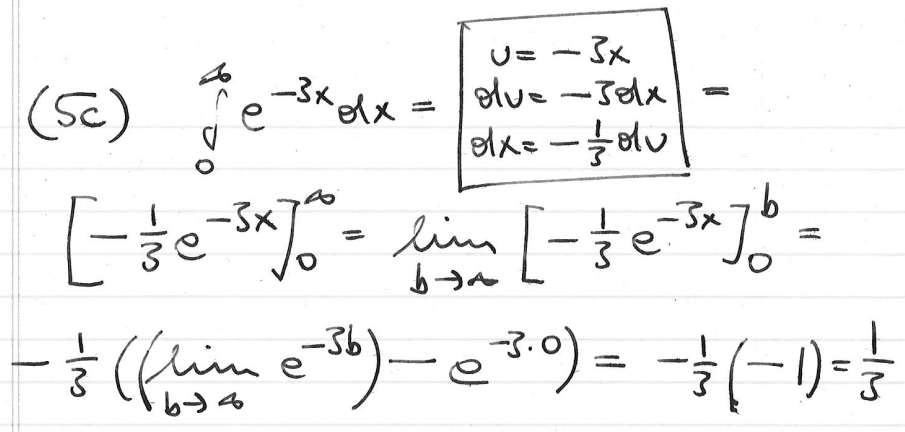 (5c) ∫₀^∞ e^{-3x} dx = [u = -3x; du = -3dx; dx = -1/3 du] =
[-1/3 e^{-3x}]₀^∞ = lim_{b→∞} [-1/3 e^{-3x}]₀^b =
-1/3 ((lim_{b→∞} e^{-3b}) - e^{-3·0}) = -1/3 (-1) = 1/3